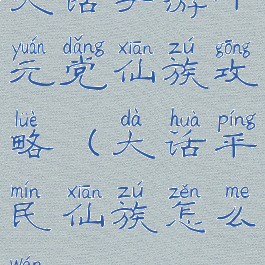 yuán dǎng xiān zú gōng
元党仙族攻
lüè dà huà píng
略(大话平
mín xiān zú zěn me
民仙族怎么